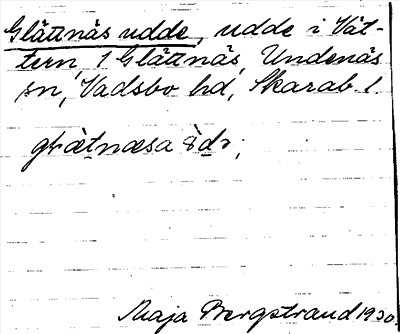 Glättnäs udde, udde i Vät-
tern, 1 Glättnäs, Undenäs
sn, Vadsbo hd, Skarab. l.
Maja Bergstrand 1930.